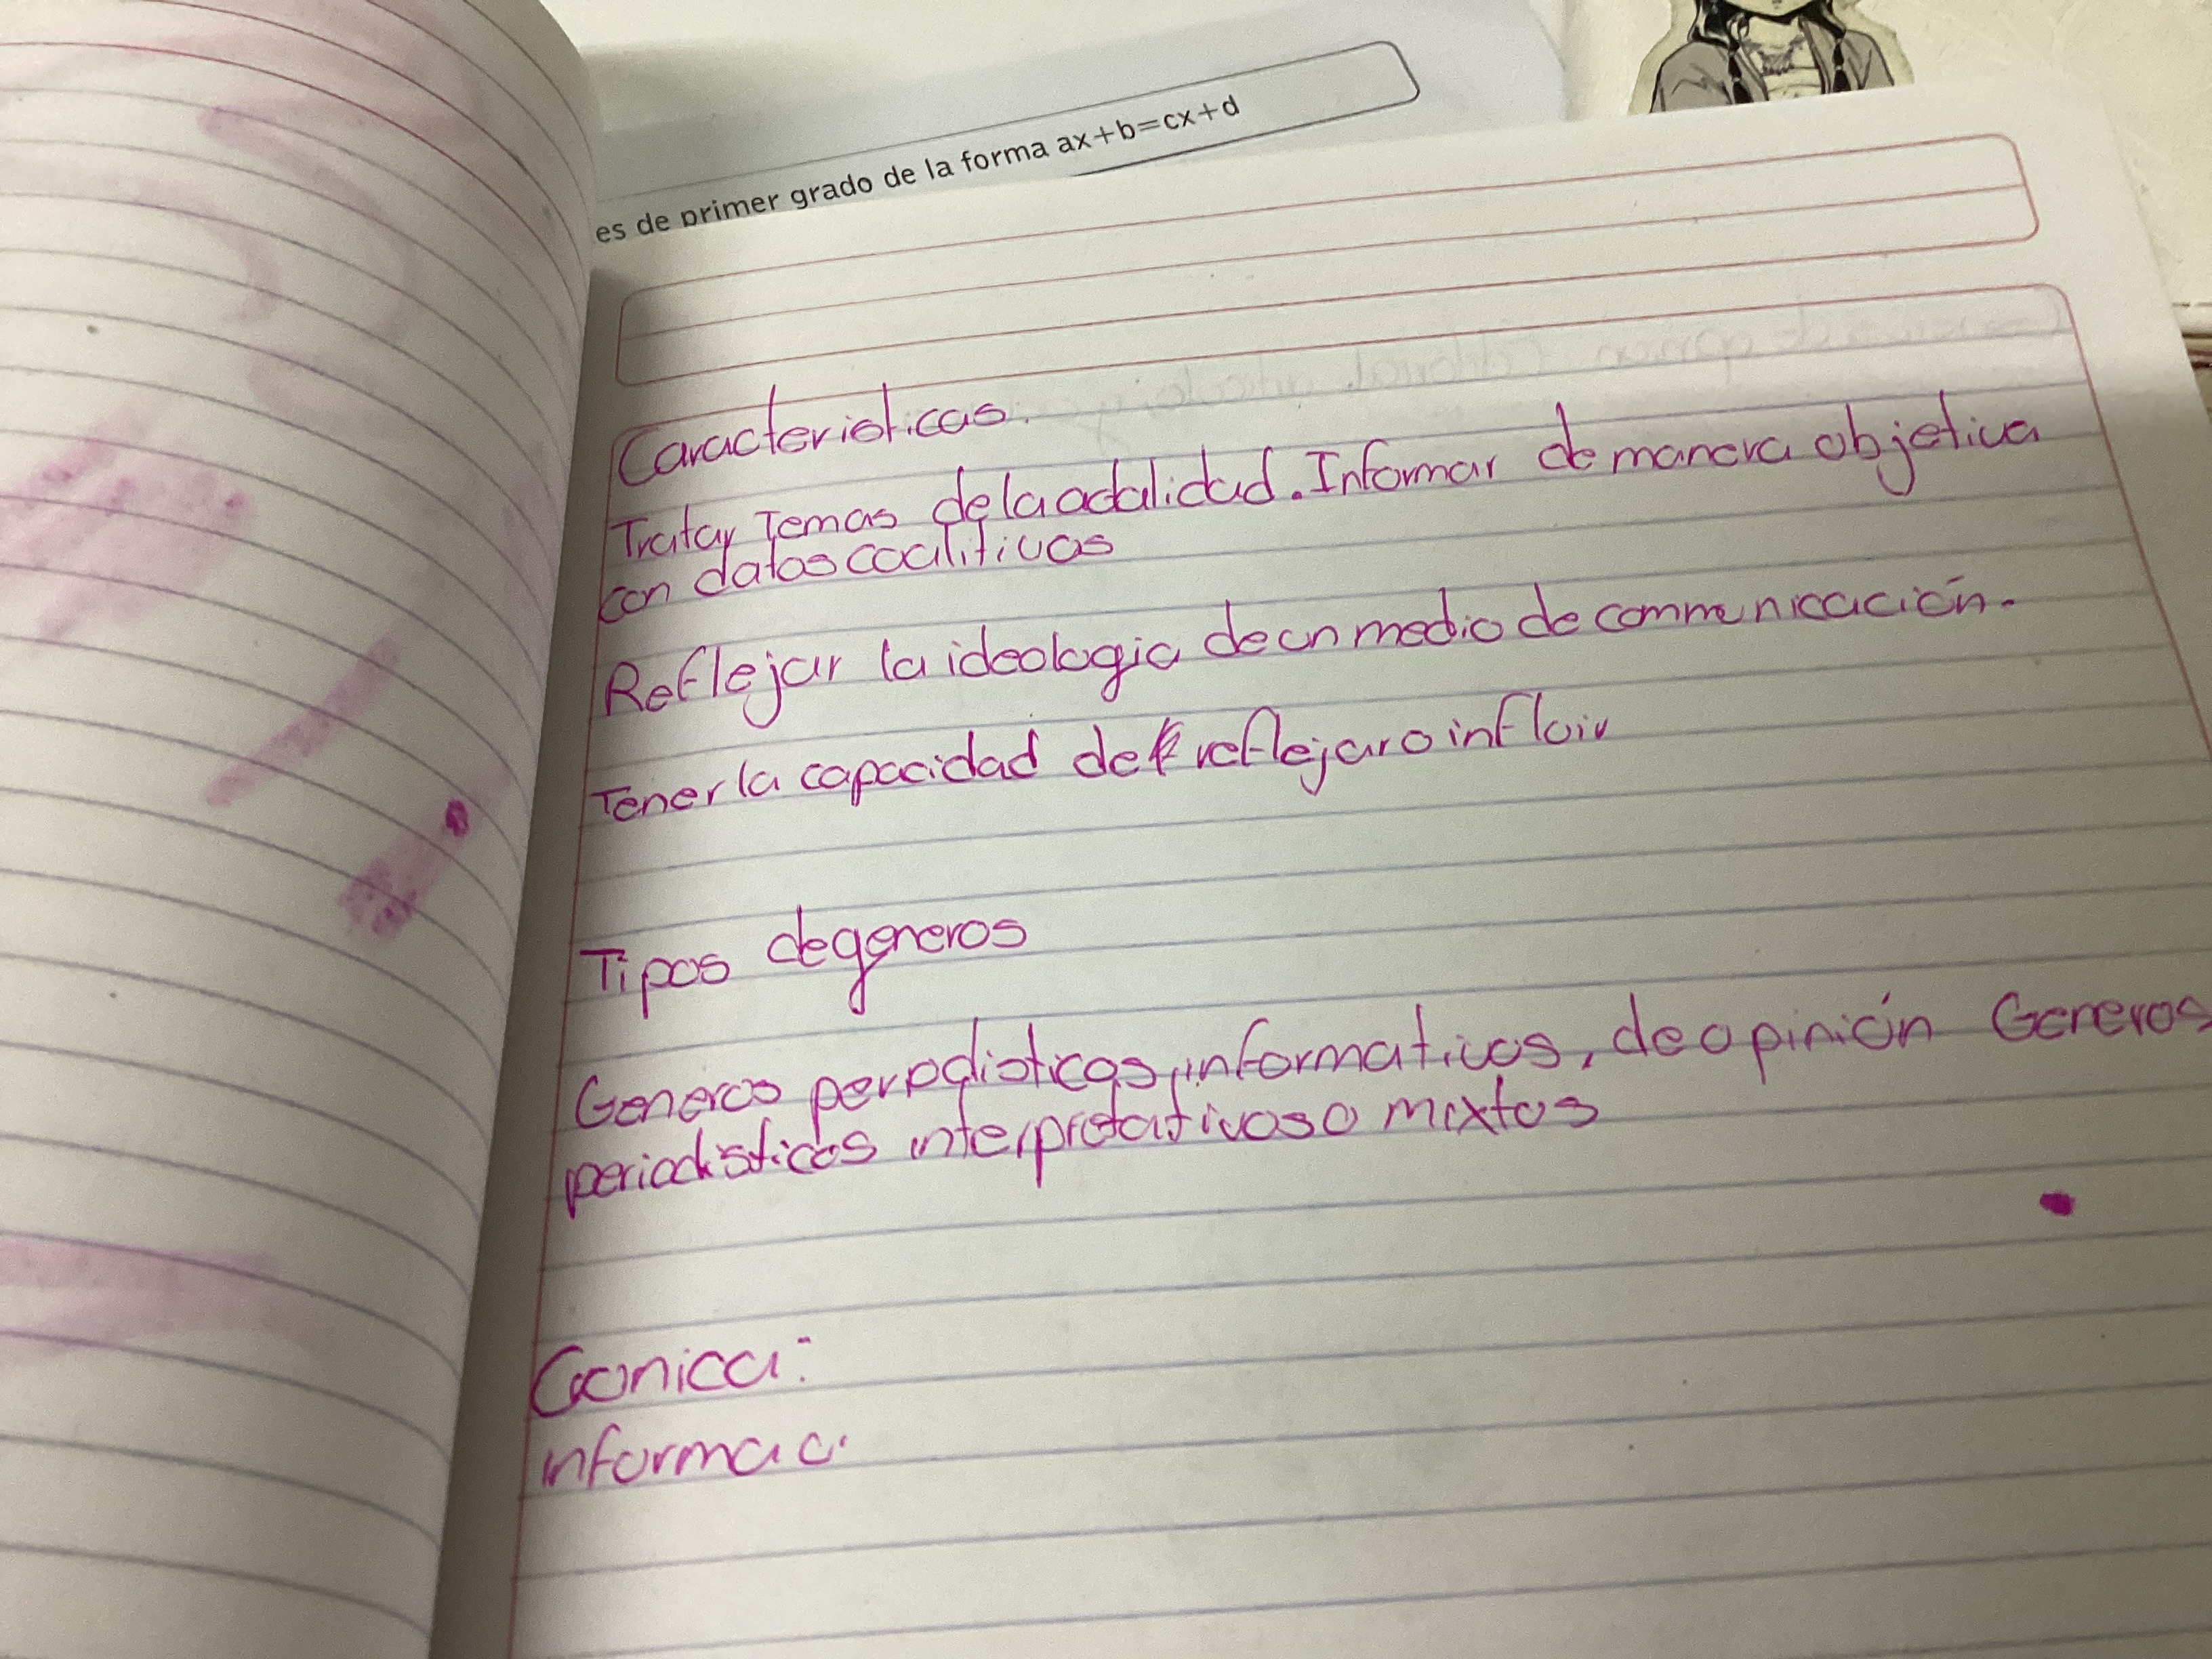 es de primer grado de la forma ax+b=cx+d
Caracteristicas.
Tratar Temas de la actalidad. Informar de manera objetiva
con datos coalitivos
Reflejar la ideologia de un medio de communicacación.
Tener la capacidad de reflejar o infloir
Tipos de generos
Generos periodisticos, informativos, de opinión Generos
periodisticos interpretativos o mixtos
Cronica:
informac